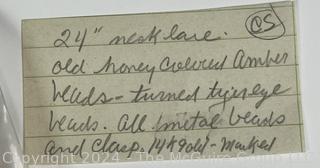 24" necklace. CS
old honey colored Amber
beads - turned tigereye
beads. All metal beads
and clasp. 14K gold - Marked
Copyright 2024 The McGuire Company